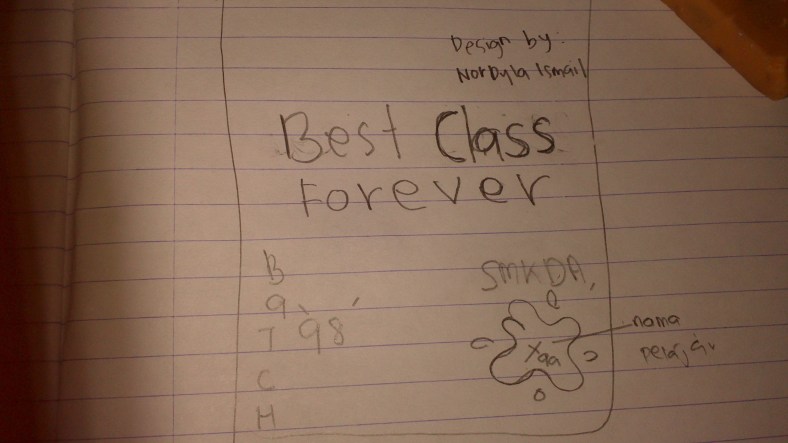 Design by:
NorDyla Ismail
Best Class
Forever
B
a
T '98'
C
H
SMKDA,
nama
pelajar